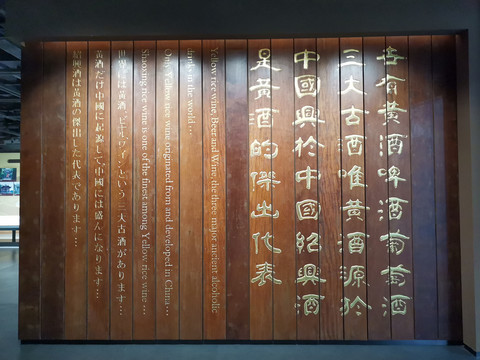 有黄酒啤酒葡萄酒
三大古酒唯黄酒源於
中國興於中國紹興酒
是黄酒的傑出代表
Yellow rice wine, Beer and Wine, the three major ancient alcoholic
drinks in the world ···
Only Yellow rice wine originated from and developed in China ···
Shaoxing rice wine is one of the finest among Yellow rice wine ···
世界には黄酒、ビール、ワインという三大古酒があります···
黄酒だけ中國に起源して、中國には盛んになります···
紹興酒は黄酒の傑出した代表であります···